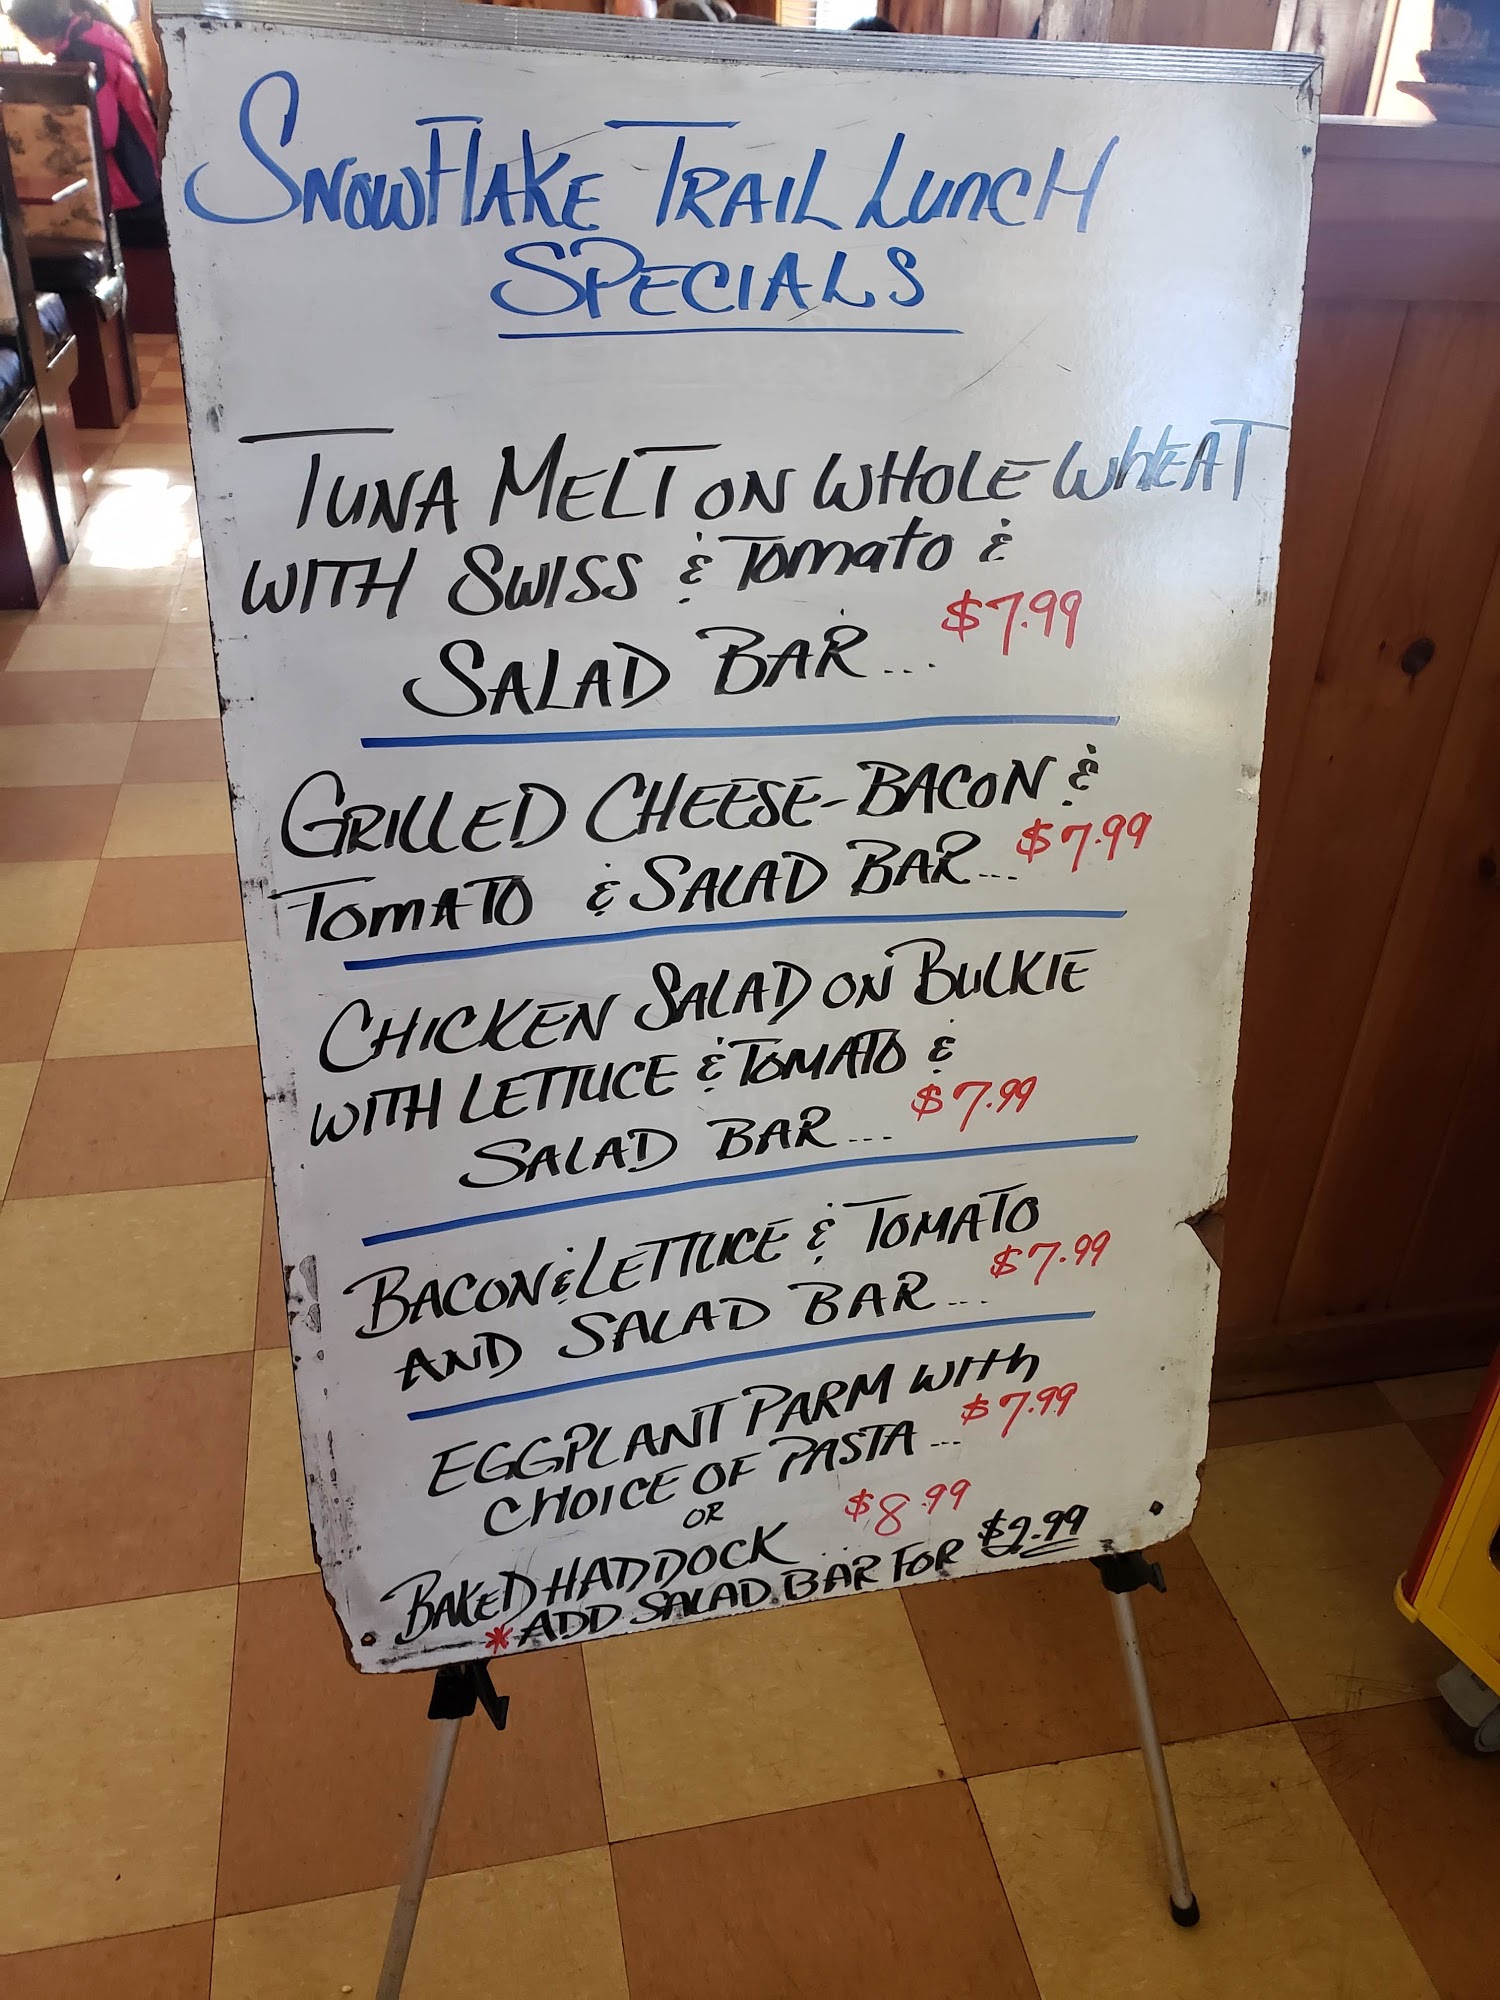 SNOWFLAKE TRAIL LUNCH
SPECIALS
TUNA MELT ON WHOLE WHEAT
WITH SWISS & TOMATO &
SALAD BAR... $7.99
GRILLED CHEESE-BACON &
TOMATO & SALAD BAR... $7.99
CHICKEN SALAD ON BULKIE
WITH LETTUCE & TOMATO &
SALAD BAR... $7.99
BACON & LETTUCE & TOMATO
AND SALAD BAR... $7.99
EGGPLANT PARM WITH
CHOICE OF PASTA... $7.99
OR
BAKED HADDOCK ... $8.99
* ADD SALAD BAR FOR $2.99